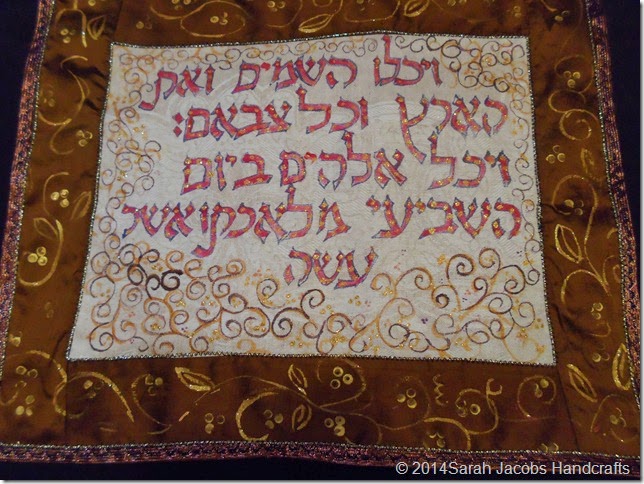 ויכלו השמים ואת
הארץ וכל צבאם:
ויכל אלהים ביום
השביעי מלאכתו אשר
עשה
© 2014Sarah Jacobs Handcrafts